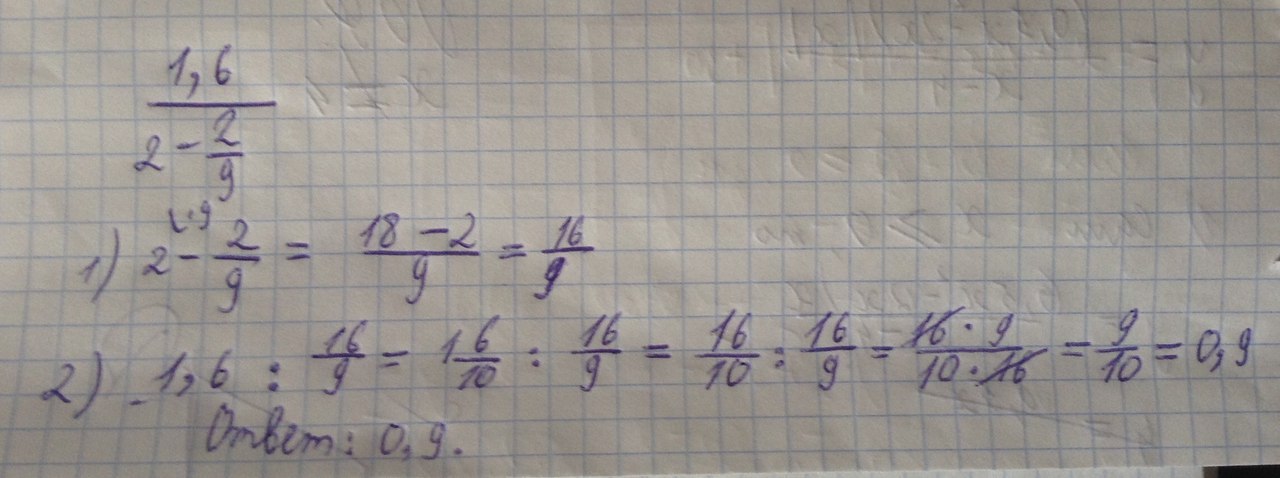 1,6
2 - 2/9
·9
1) 2 - 2/9 = 18 - 2/9 = 16/9
2) 1,6 : 16/9 = 1 6/10 : 16/9 = 16/10 : 16/9 = 16 · 9/10 · 16 = 9/10 = 0,9
Ответ: 0,9.